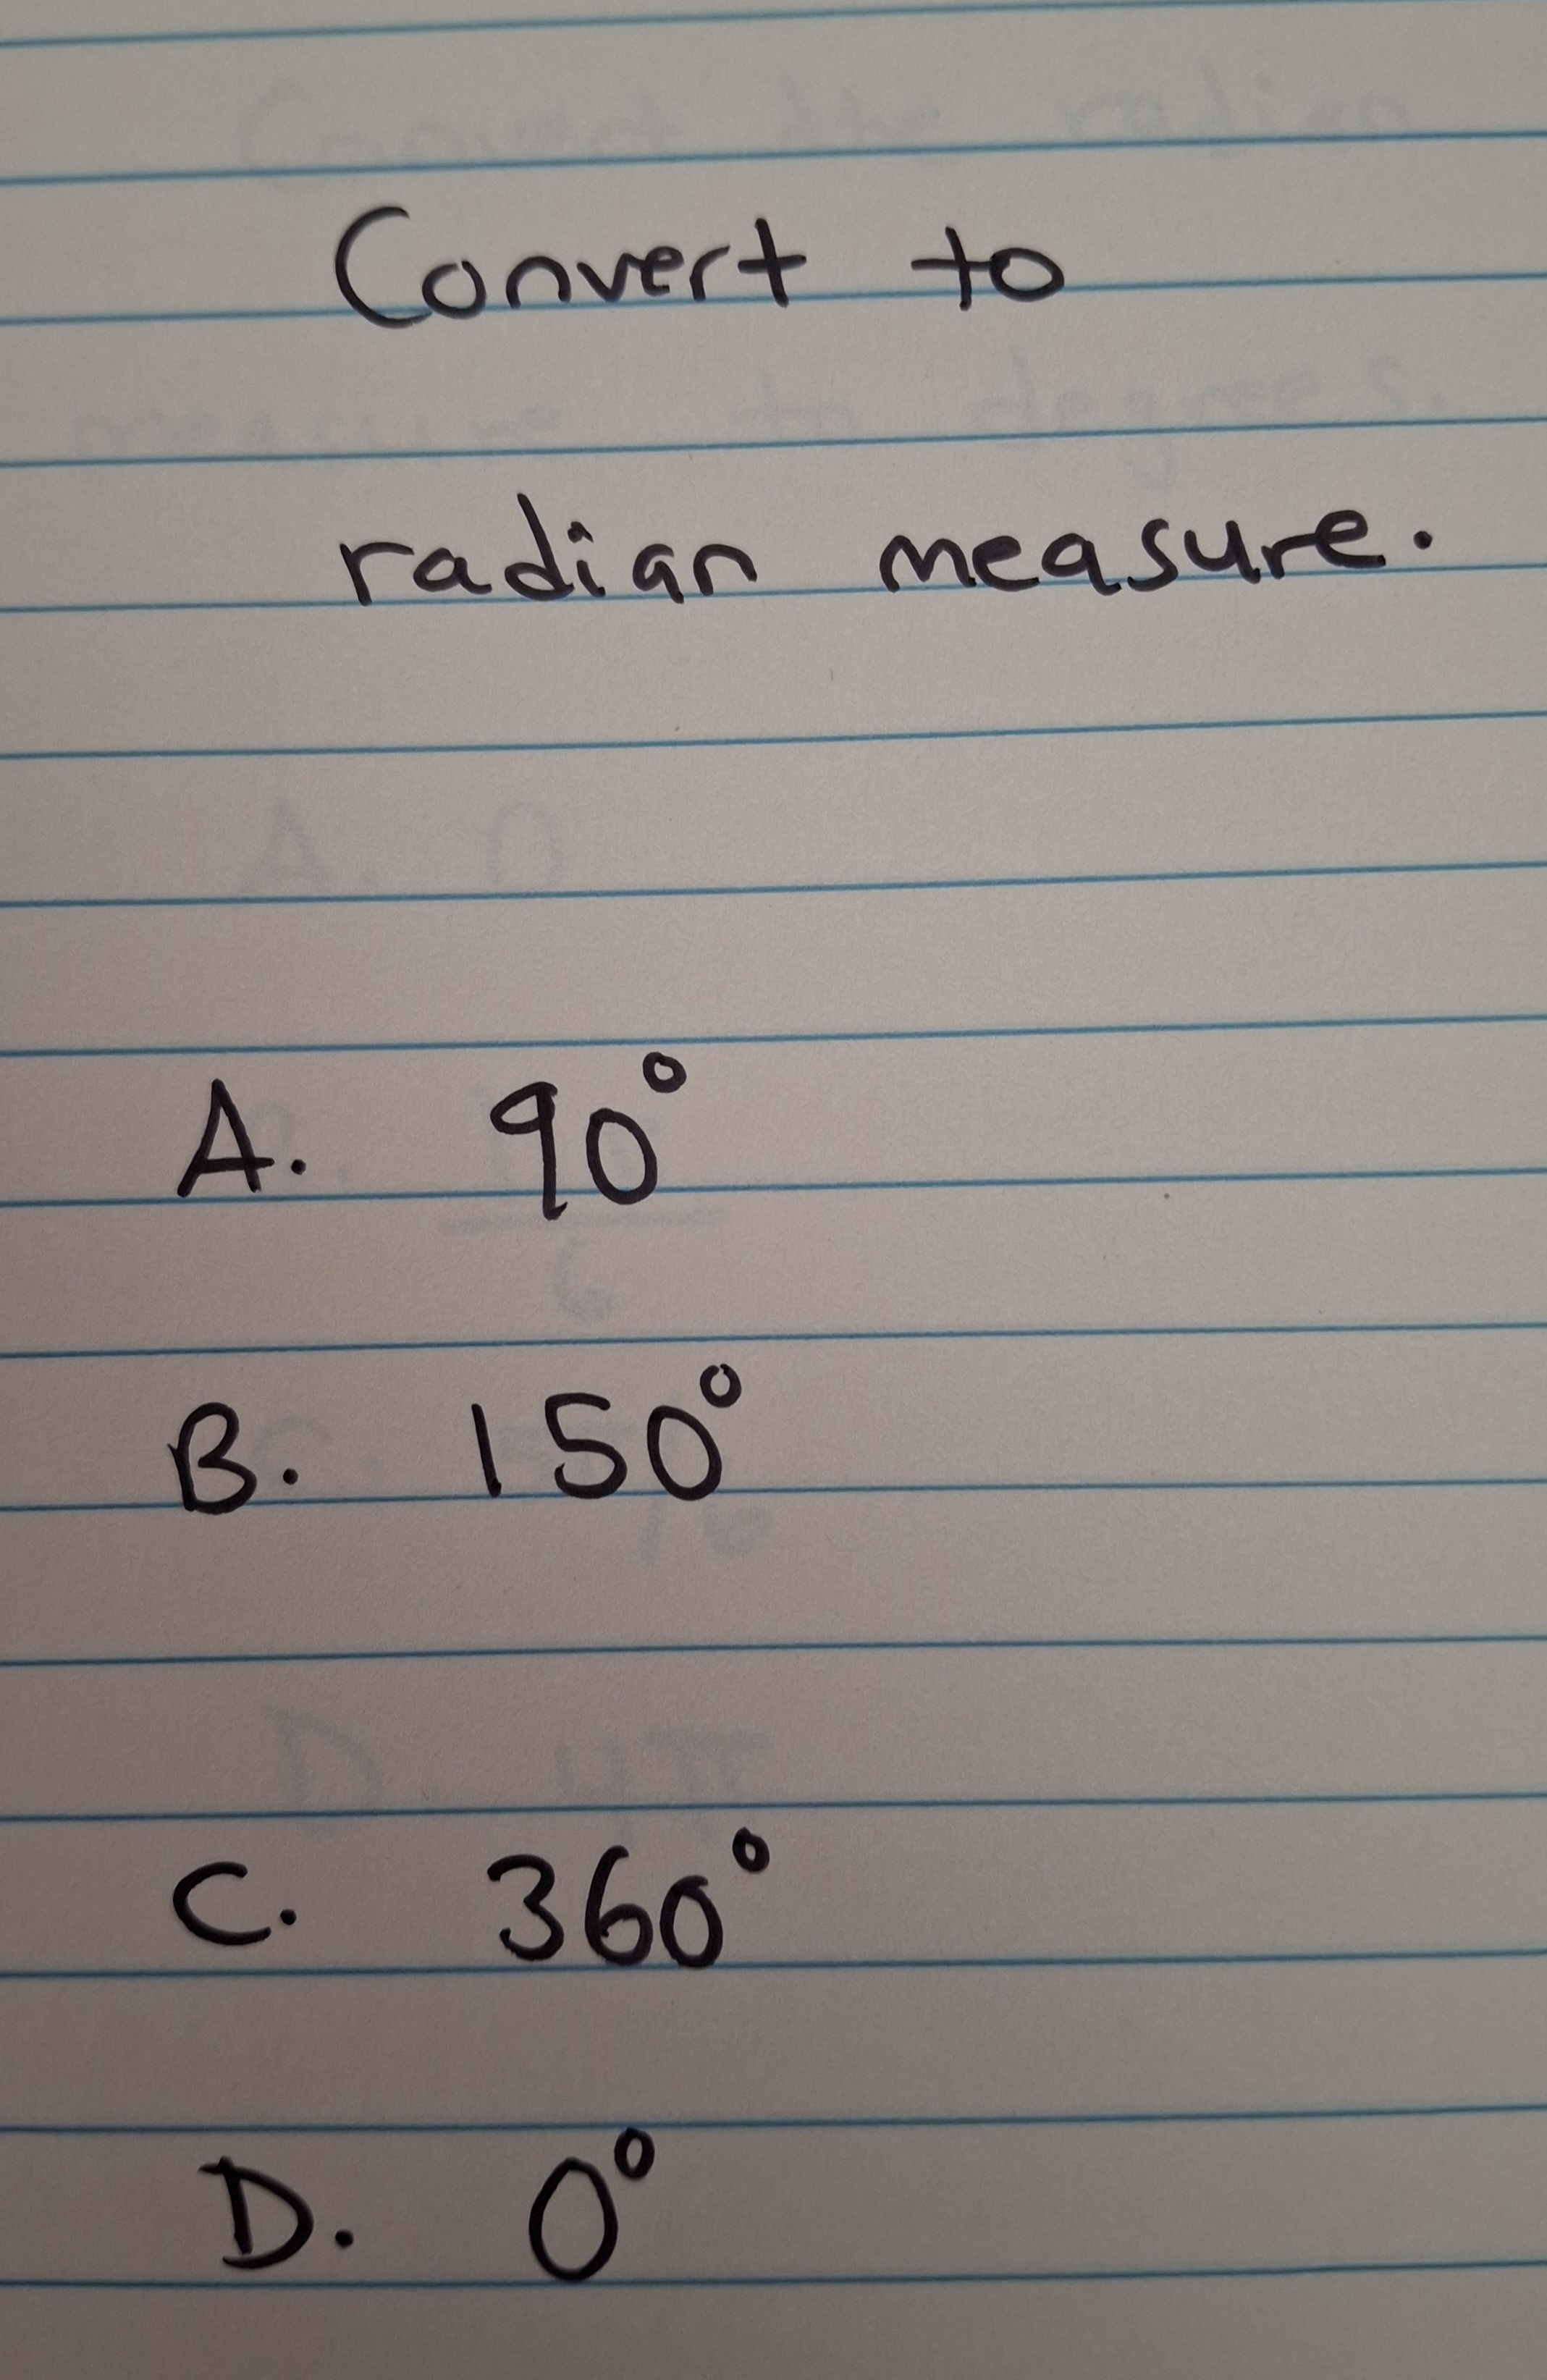 Convert to
radian measure.
A. 90°
B. 150°
C. 360°
D. 0°